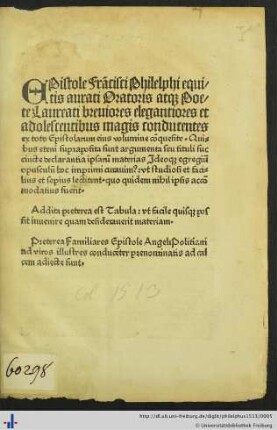 Epistole Frãcisci Philelphi equi-
tis aurati Oratoris atqz Poe-
te Laureati breuiores elegantiores et
adolescentibus magis conducentes
ex toto Epistolarum eius volumine cõquesite. Quis
bus etem suprapofita sunt argumenta seu tituli suc
cincte declarantia ipsarũ materias Ideoqz egregiũ
opusculũ hoc imprimi curauim? vt studiosi et faci
lius et sepius lectitent. quo quidem nihil ipsis accõ
modatius fuerit.
Addita preterea est Tabula: vt facile quisqz pos
sit inuenire quam desiderauerit materiam.
Preterea Familiares Epistole Angeli Politiani
ad viros illustres conducenter prenominatis ad cal
cem adiecte sunt.
Col 1513
60298
http://dl.ub.uni-freiburg.de/diglit/philelphus1513/0005
© Universitätsbibliothek Freiburg